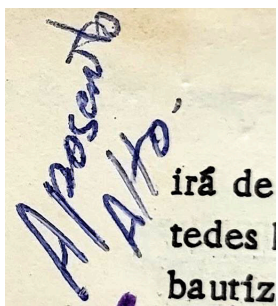 Aposento
Alto.
irá de
tedes
bautiz